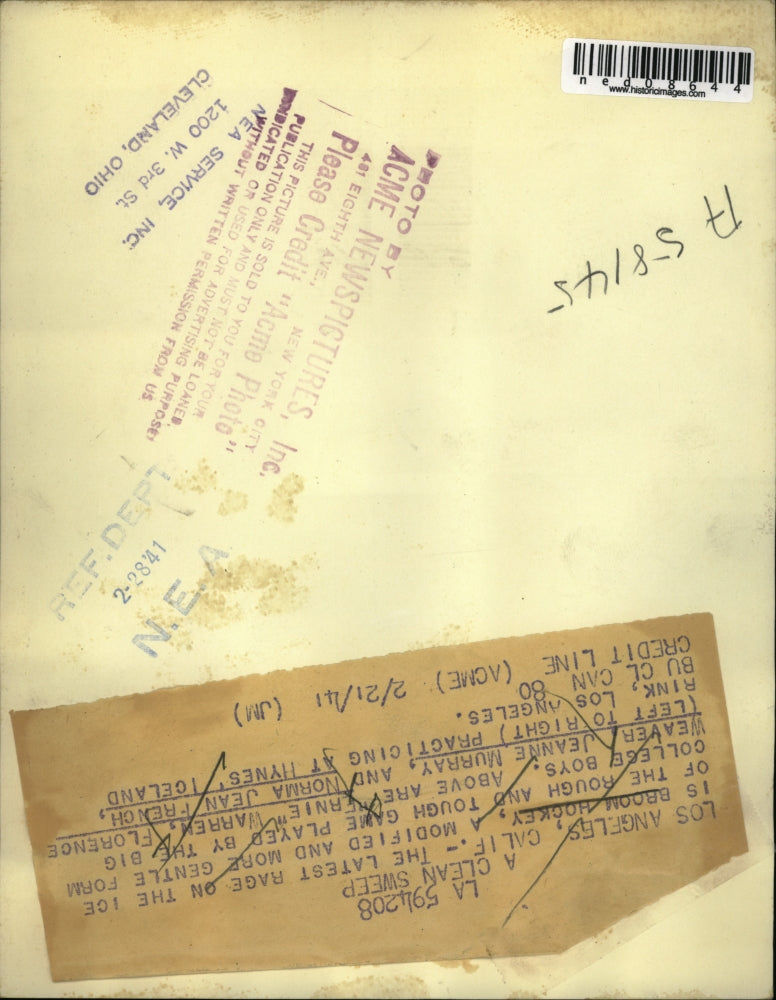 ned08644
www.historicimages.com
PHOTO BY
ACME NEWSPICTURES, Inc.
461 EIGHTH AVE., NEW YORK CITY
Please Credit "Acme Photo"
THIS PICTURE IS SOLD TO YOU FOR YOUR
PUBLICATION ONLY AND MUST NOT BE LOANED
SYNDICATED OR USED FOR ADVERTISING PURPOSES
WITHOUT WRITTEN PERMISSION FROM US
NEA SERVICE, INC.
1200 W. 3rd St.
CLEVELAND, OHIO
REF. DEPT
2-28'41
N.E.A
LA 594208
A CLEAN SWEEP
LOS ANGELES, CALIF.- THE LATEST RAGE ON THE ICE
IS BROOM HOCKEY, A MODIFIED AND MORE GENTLE FORM
OF THE ROUGH AND TOUGH GAME PLAYED BY THE BIG
COLLEGE BOYS. ABOVE ARE "ERNIE" WARREN, FLORENCE
WEAVER, JEANNE MURRAY, AND NORMA JEAN FRENCH,
(LEFT TO RIGHT) PRACTICING AT HYNES' ICELAND
RINK, LOS ANGELES.
BU CL CAN 80
CREDIT LINE (ACME) 2/21/41 (JM)